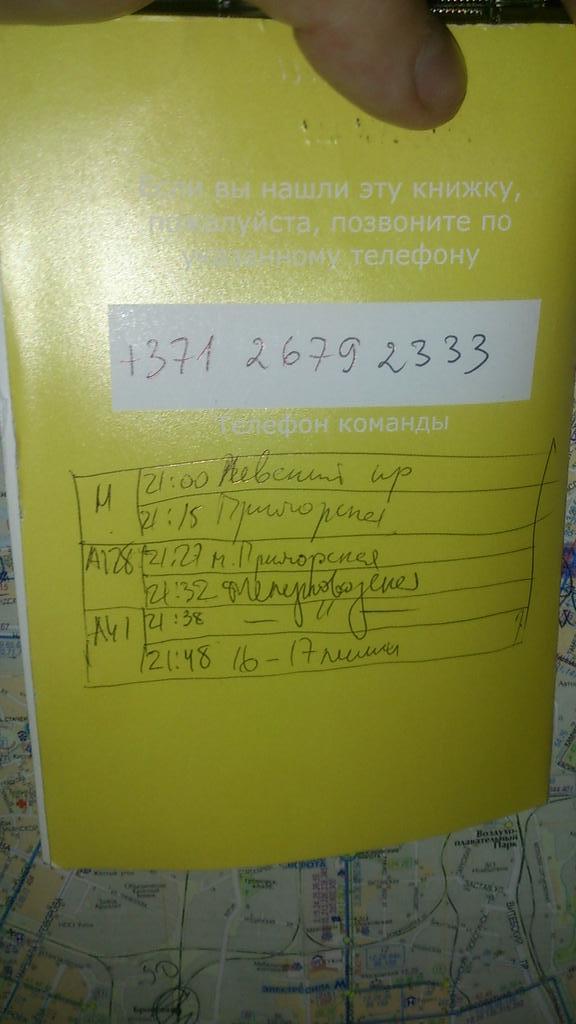 Если вы нашли эту книжку,
пожалуйста, позвоните по
указанному телефону
+371 2679 2333
Телефон команды
М 21:00 Невский пр
21:15 Приморская
А128 21:27 м. Приморская
21:32
А41 21:38 — " —
21:48 16-17 линии
Воздухо-
плавательный
Парк